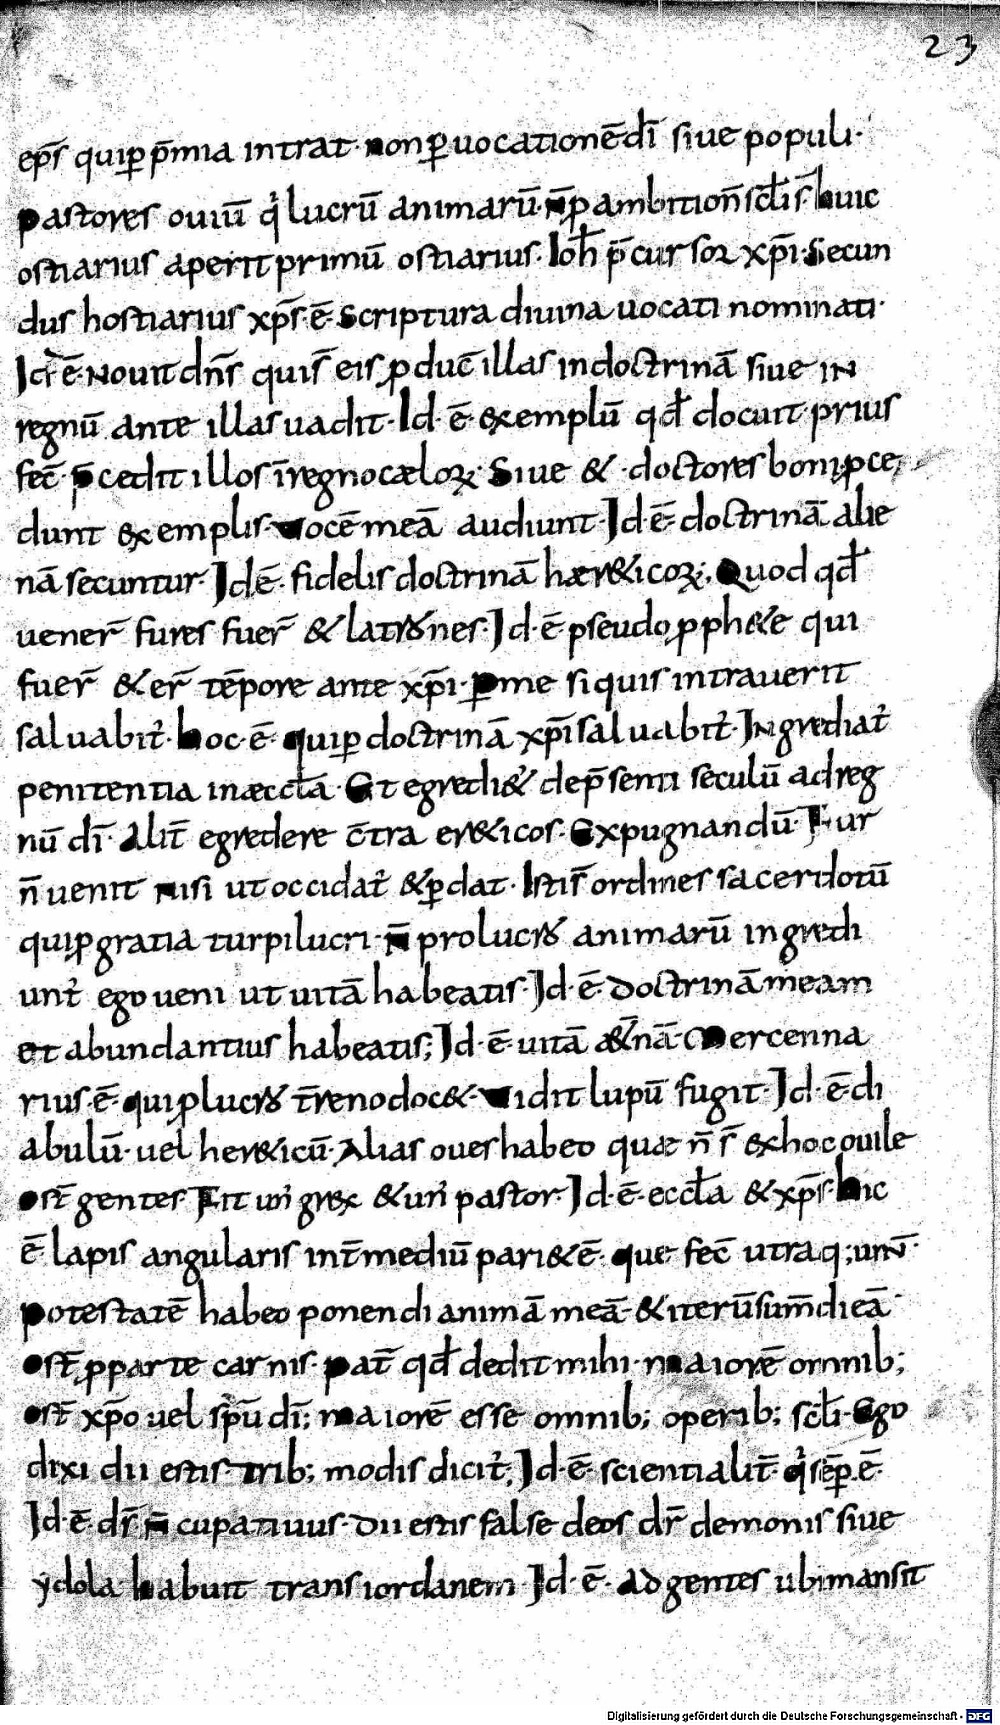 23
ep̄s quip p̄mia intrat· non ꝑ uocationē dī siue populi·
pastores ouiū qͥ lucrū animarū· n̄ ꝑ ambition̄ scłi s̄ huic
ostiarius aperit primū ostiarius· Ioh̄ p̄cursor xp̄i· Secun
dus hostiarius xp̄s· ē· scriptura diuina uocati nominati·
Id ē· Nouit dn̄s qui s̄ eis ꝓduc̄ illas in doctrinā siue in
regnū ante illas uadit· Id· ē· exemplū qđ docuit prius
fec̄· p̄cedit illos ī regno cæloꝝ· Siue & doctores boni p̄ce
dunt exemplis· uocē meā audiunt· Id· ē· doctrinā alie
nā secuntur· Id ē· fidelis doctrinā hær&icoꝝ; Quod qđ
uener̄ fures fuer̄ & latrones· Id· ē pseudo ꝓph&e qui
fuer̄ & er̄ tēpore ante xp̄i· ꝑ me si quis intrauerit
saluabit᷑· hoc· ē· qui ꝑ doctrinā xp̄i saluabit᷑· Ingrediat᷑
penitentia in æccłā· Et egredi&᷑ de p̄senti seculū ad reg
nū dī· Alit̄ egredere c̄tra er&icos· Expugnandū· Fur
n̄ uenit nisi ut occidat᷑ & ꝑdat· Isti s̄ ordines sacerdotū
qui ꝓ gratia turpi lucri· n̄ pro lucro animarū ingredi
unt᷑ ego ueni ut uitā habeatis· Id· ē· doctrinā meam
et abundantius habeatis; Id· ē· uitā æt̄nā· Mercenna
rius· ē· qui ꝓ lucro t̄reno doc&· uidit lupū fugit· Id· ē· di
abulū· uel her&icū· Alias oues habeo quæ n̄ s̄ ex hoc ouile
ost̄ gentes Fit un᷑ grex & un᷑ pastor· Id· ē· eccłā & xp̄s· hic
ē· lapis angularis int̄ mediū pari&ē· que fec̄ utraq; unū·
potestatē habeo ponendi animā meā· & iterū sum̄di eā·
ost̄ ꝓ parte carnis· pat̄ qđ dedit mihi· maiorē omnib;
ost̄ xp̄o uel sp̄u dī; maiorē esse omnib; operib; scłi· Ego
dixi dii estis· trib; modis dicit᷑; Id· ē· scientialit̄· qͥ sēꝑ· ē·
Id· ē· dr̄ n̄cupatiuus· Dii estis false deos dr̄ demonis siue
ydola· habuit trans iordanem· Id· ē· ad gentes ubi mansit
Digitalisierung gefördert durch die Deutsche Forschungsgemeinschaft - DFG